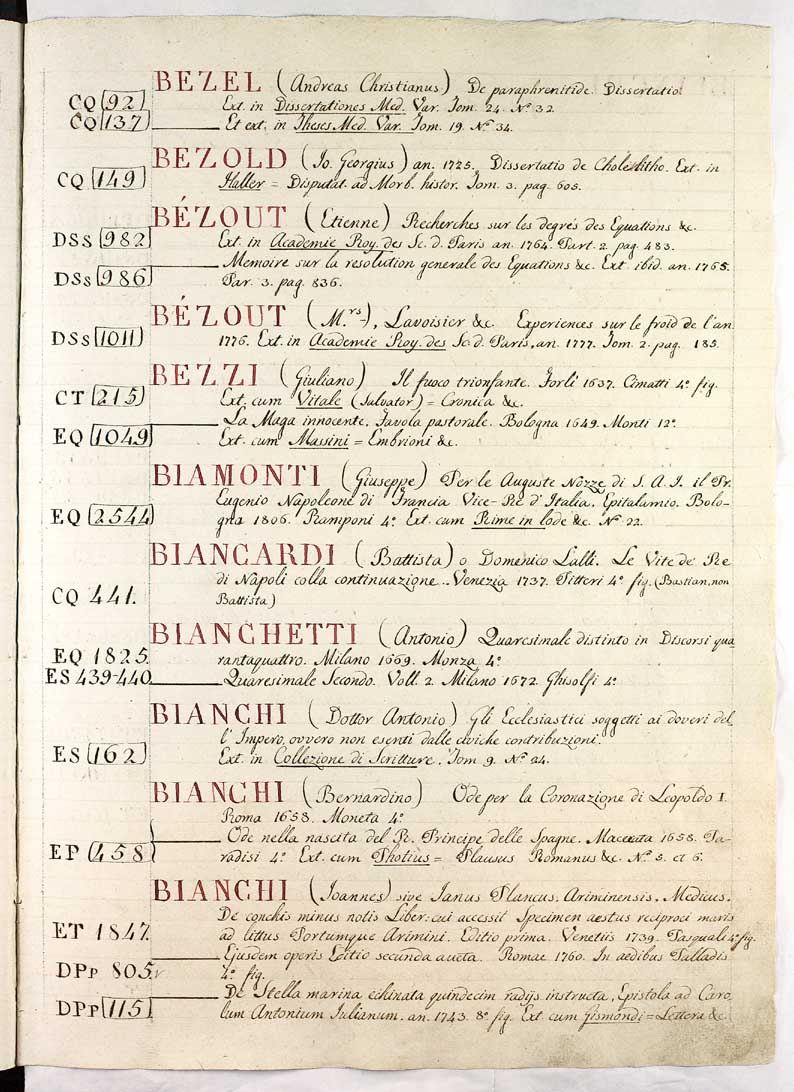 BEZEL (Andreas Christianus) De paraphrenitide. Dissertatio
CQ 92 Ext. in Dissertationes Med. Var. Tom. 24. Nº 32.
CQ 137 Et ext. in Theses Med. Var. Tom. 19. Nº 34.
BEZOLD (Io. Georgius) an. 1725. Dissertatio de Cholelitho. Ext. in
CQ 149 Haller = Disputat. ad Morb. histor. Tom. 3. pag. 605.
BÉZOUT (Etienne) Recherches sur les degrés des Equations &c.
DSs 982 Ext. in Academie Roy. des Sc. d. Paris an. 1764. Part. 2. pag. 483.
Memoire sur la resolution generale des Equations &c. Ext. ibid. an. 1765.
DSs 986 Par. 3. pag. 836.
BÉZOUT (M.rs), Lavoisier &c. Experiences sur le froid de l'an
DSs 1011 1776. Ext. in Academie Roy. des Sc. d. Paris, an. 1777. Tom. 2. pag. 185.
BEZZI (Giuliano) Il fuoco trionfante. Forlì 1637. Cimatti 4º fig.
CT 215 Ext. cum Vitale (Salvator) = Cronica &c.
La Maga innocente, Favola pastorale. Bologna 1649. Monti 12º
EQ 1049 Ext. cum Massini = Embrioni &c.
BIAMONTI (Giuseppe) Per le Auguste Nozze di S. A. I. il Pr.
Eugenio Napoleone di Francia Vice-Re d'Italia. Epitalamio. Bolo-
EQ 2544 gna 1806. Ramponi 4º Ext. cum Rime in lode &c. Nº 22.
BIANCARDI (Battista) o Domenico Lalli. Le Vite de' Re
di Napoli colla continuazione.. Venezia 1737. Pitteri 4º fig. (Bastian, non
CQ 441. Battista)
BIANCHETTI (Antonio) Quaresimale distinto in Discorsi qua
EQ 1825. rantaquattro. Milano 1669. Monza 4º
ES 439-440 Quaresimale Secondo. Voll. 2. Milano 1672. Ghisolfi 4º
BIANCHI (Dottor Antonio) Gli Ecclesiastici soggetti ai doveri del
l'Impero, ovvero non esenti dalle civiche contribuzioni.
ES 162 Ext. in Collezione di Scritture. Tom 9. Nº 24.
BIANCHI (Bernardino) Ode per la Coronazione di Leopoldo I.
Roma 1658. Moneta 4º
Ode nella nascita del R. Principe delle Spagne. Macerata 1658. Pa-
EP 458 radisi 4º Ext. cum Photius = Plausus Romanus &c. Nº 5. et 6.
BIANCHI (Joannes) sive Ianus Plancus, Ariminensis, Medicus.
De conchis minus notis Liber: cui accessit Specimen aestus reciproci maris
ET 1847. ad littus Portumque Arimini. Editio prima. Venetiis 1739. Pasquali 4º fig.
Ejusdem operis Editio secunda aucta. Romae 1760. In aedibus Palladis
DPp 805. 4º fig.
De Stella marina echinata quindecim radijs instructa, Epistola ad Caro
DPp 115 lum Antonium Iulianum. an. 1743. 8º fig. Ext cum Gismondi = Lettera &c.